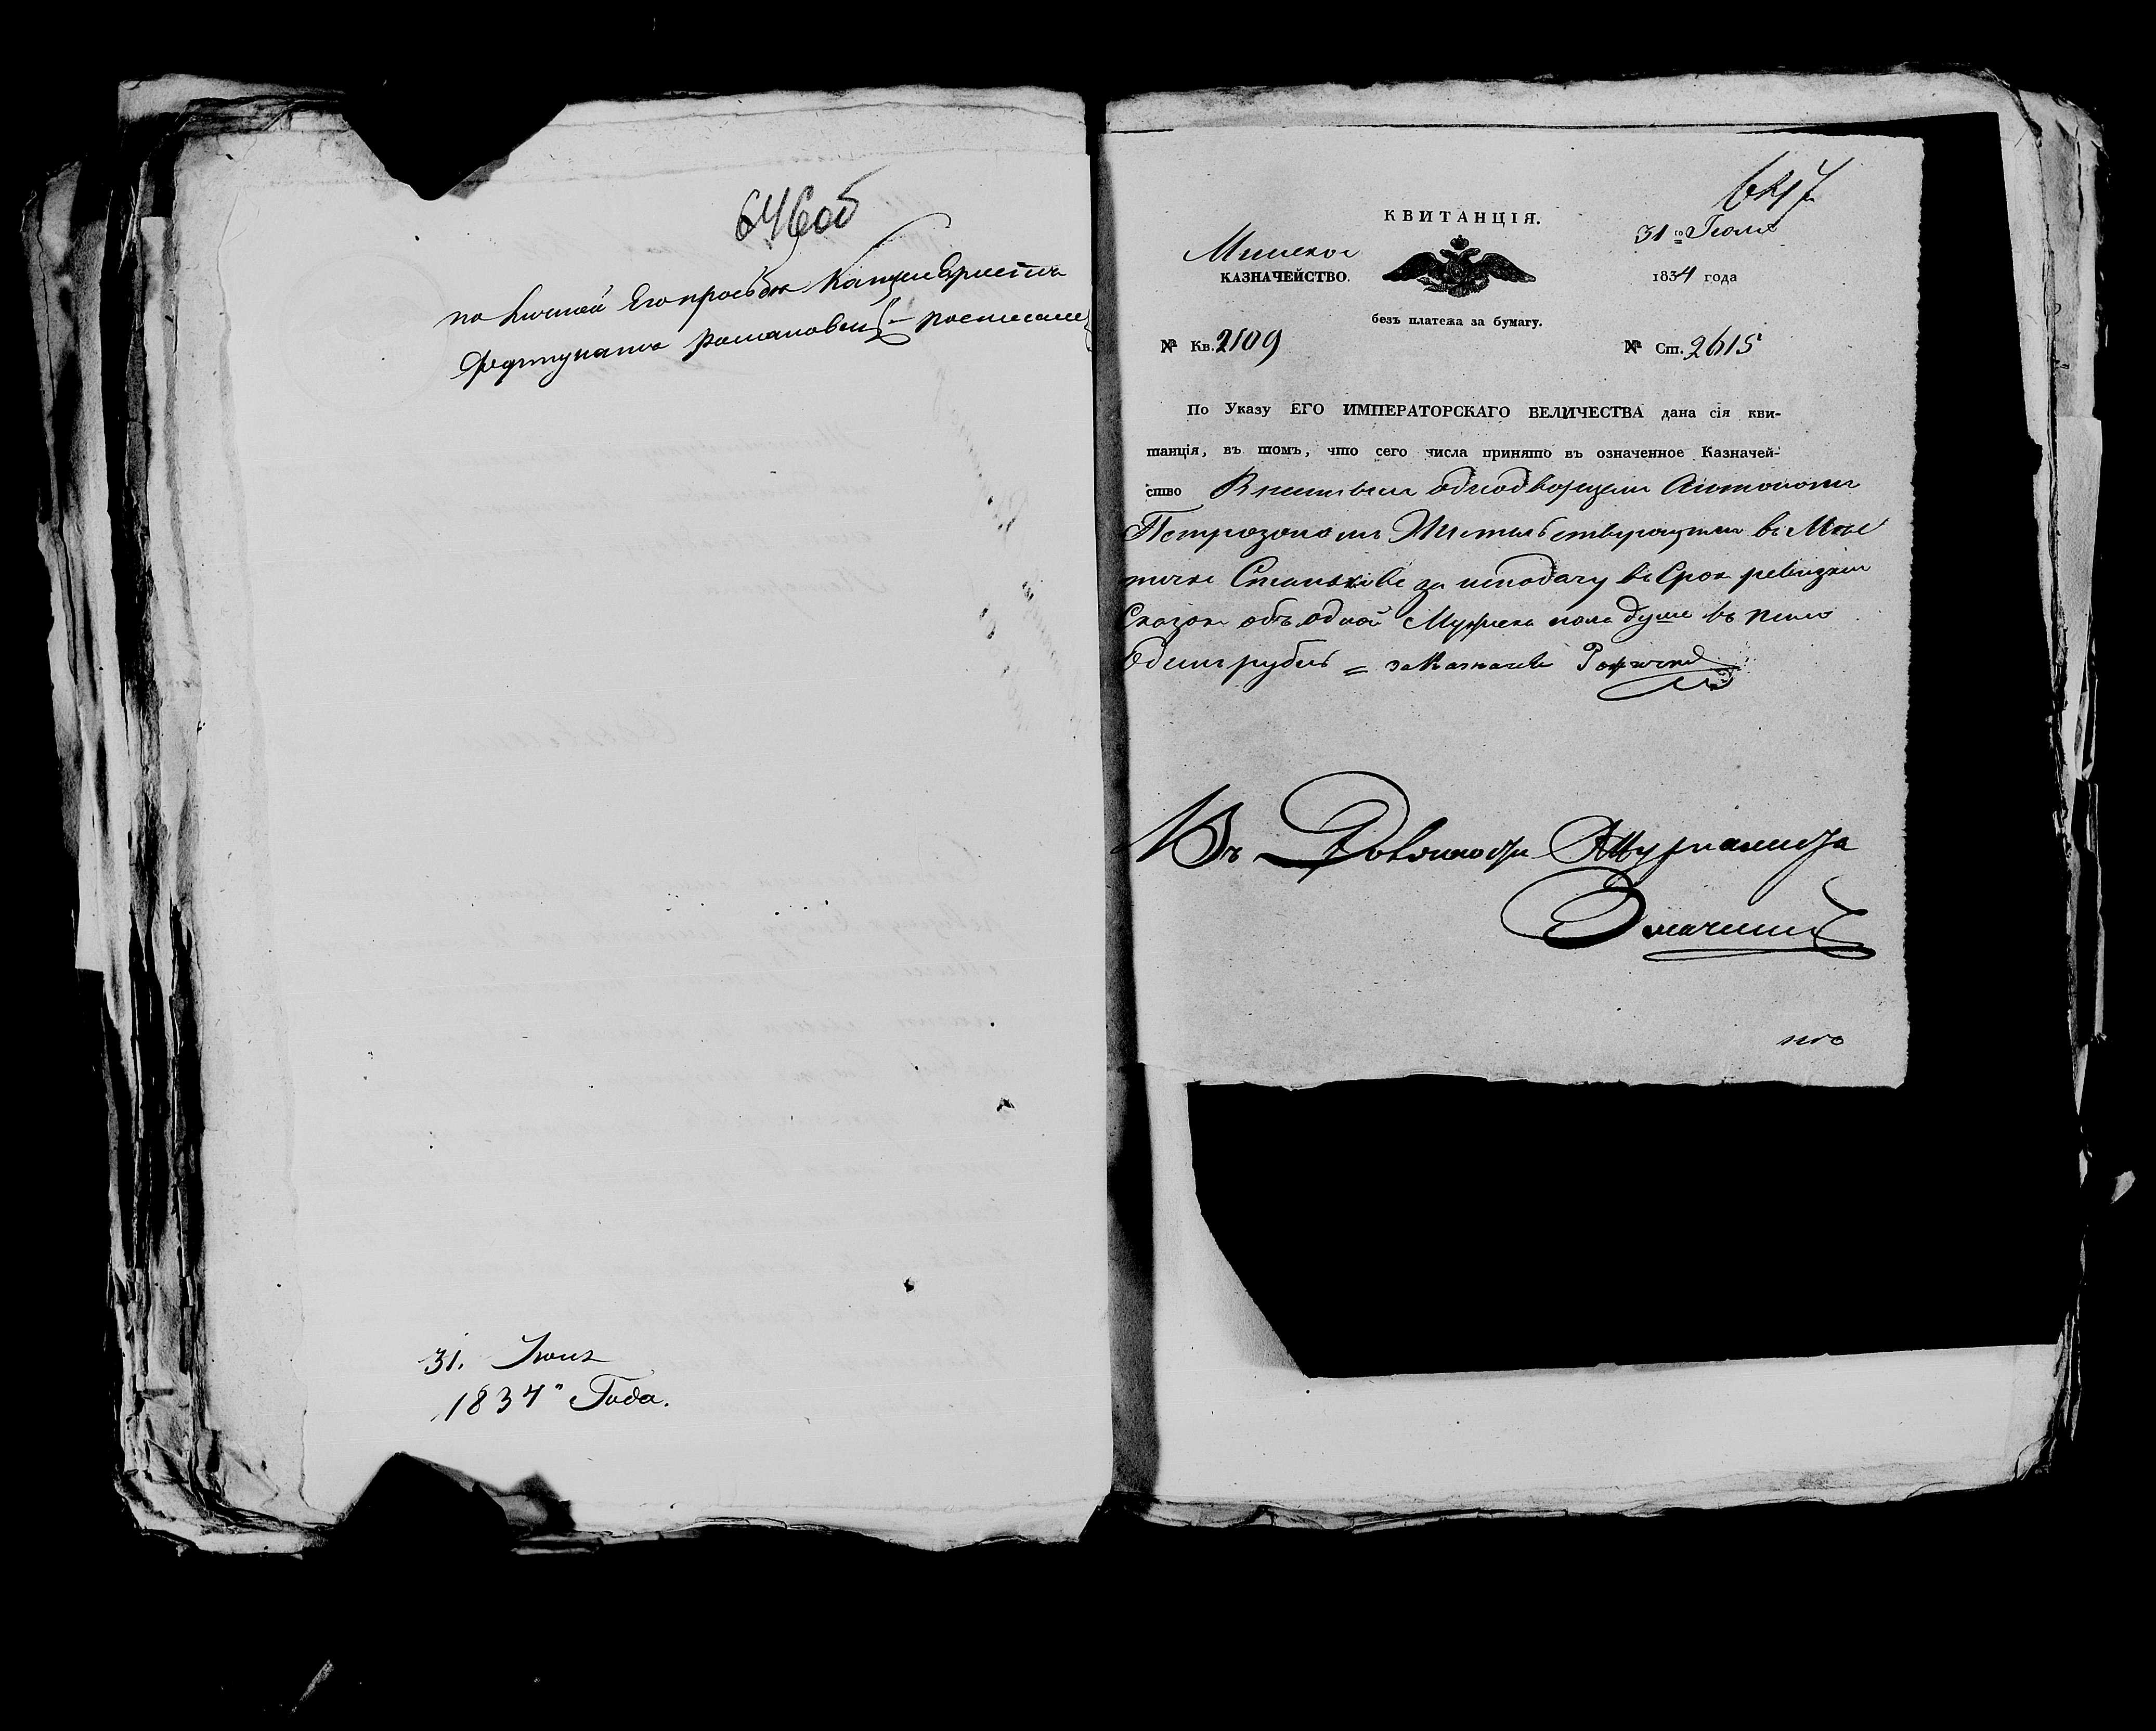 646об
по личной Его прозьбѣ Канцеляристъ
Фортунатъ Романовскій росписался
31. Іюля
1834" Года.
647
КВИТАНЦІЯ.
31го Іюля
Минское
КАЗНАЧЕЙСТВО.
1834 года
безъ платежа за бумагу.
№ Кв. 2109
№ Ст. 2615
По Указу ЕГО ИМПЕРАТОРСКАГО ВЕЛИЧЕСТВА дана сія кви-
танція, въ томъ, что сего числа принято въ означенное Казначей-
ство одноворцемъ Антономъ
жительствующимъ въ Мѣс
течкѣ Станьковѣ за неподачу въ Срокъ ревизкой
Сказки объ одной Мужеска пола душе въ пеню
Одинъ рубль = за Казначея
Въ Должности Журналиста